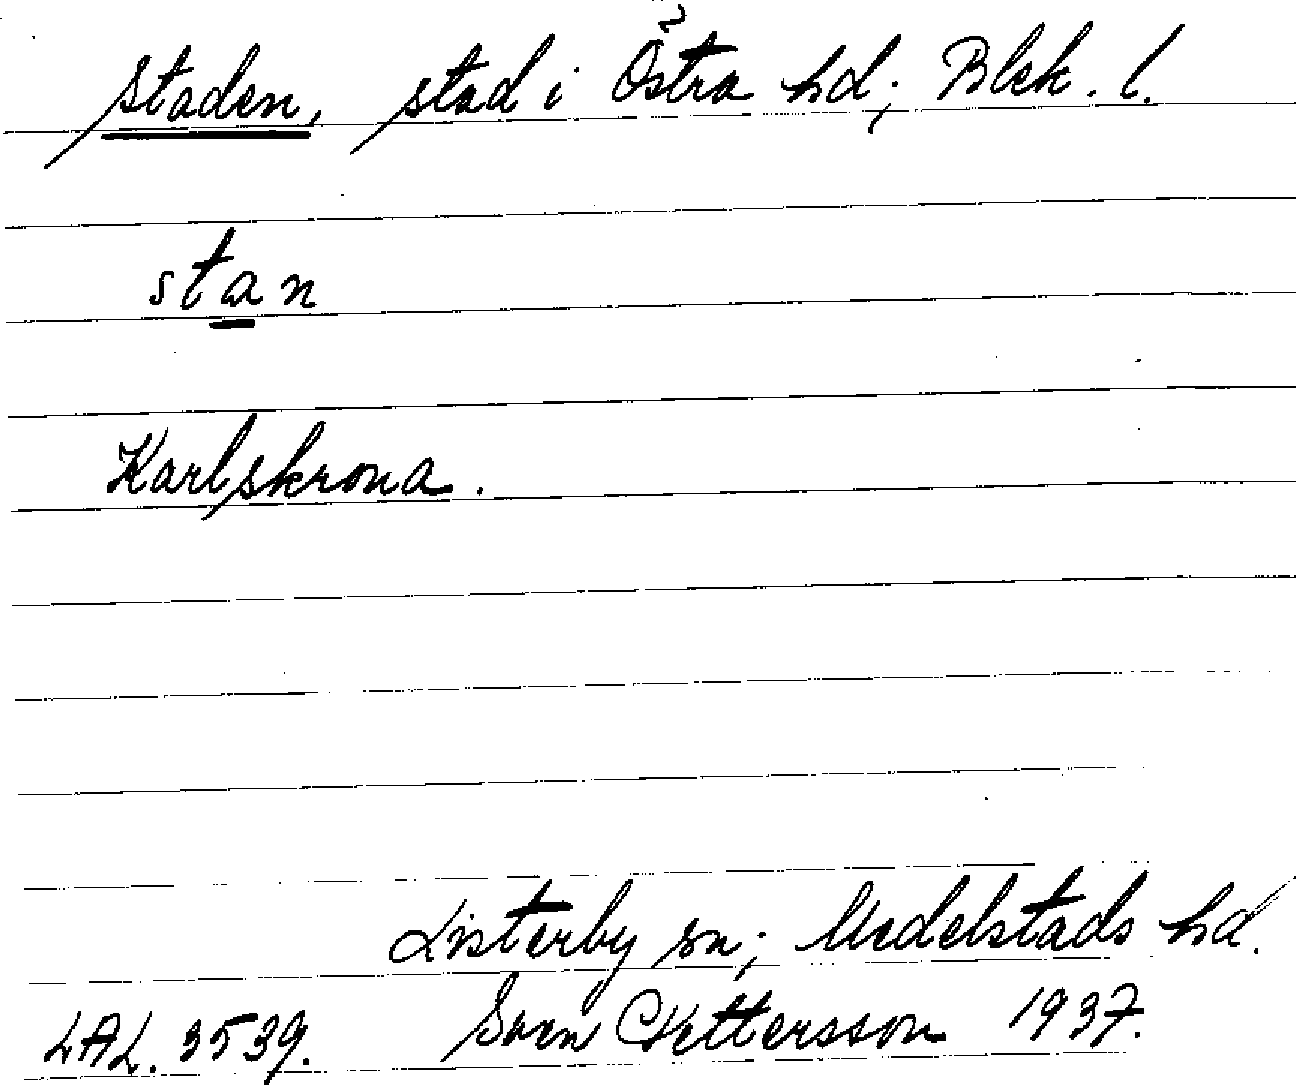 staden, stad i Östra hd; Blek. l.
stan
Karlskrona.
Listerby sn; Medelstads hd.
LAL. 3539. Sven Pettersson 1937.